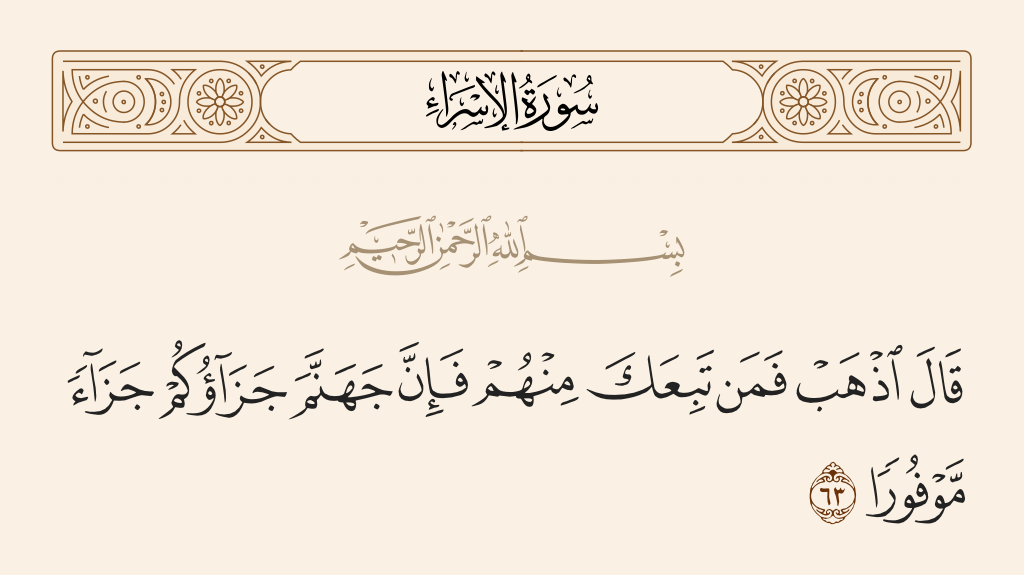 سُورَةُ الإِسْرَاءِ
بِسْمِ ٱللَّهِ ٱلرَّحْمَٰنِ ٱلرَّحِيمِ
قَالَ ٱذْهَبْ فَمَن تَبِعَكَ مِنْهُمْ فَإِنَّ جَهَنَّمَ جَزَآؤُكُمْ جَزَآءً
مَّوْفُورًا ٦٣